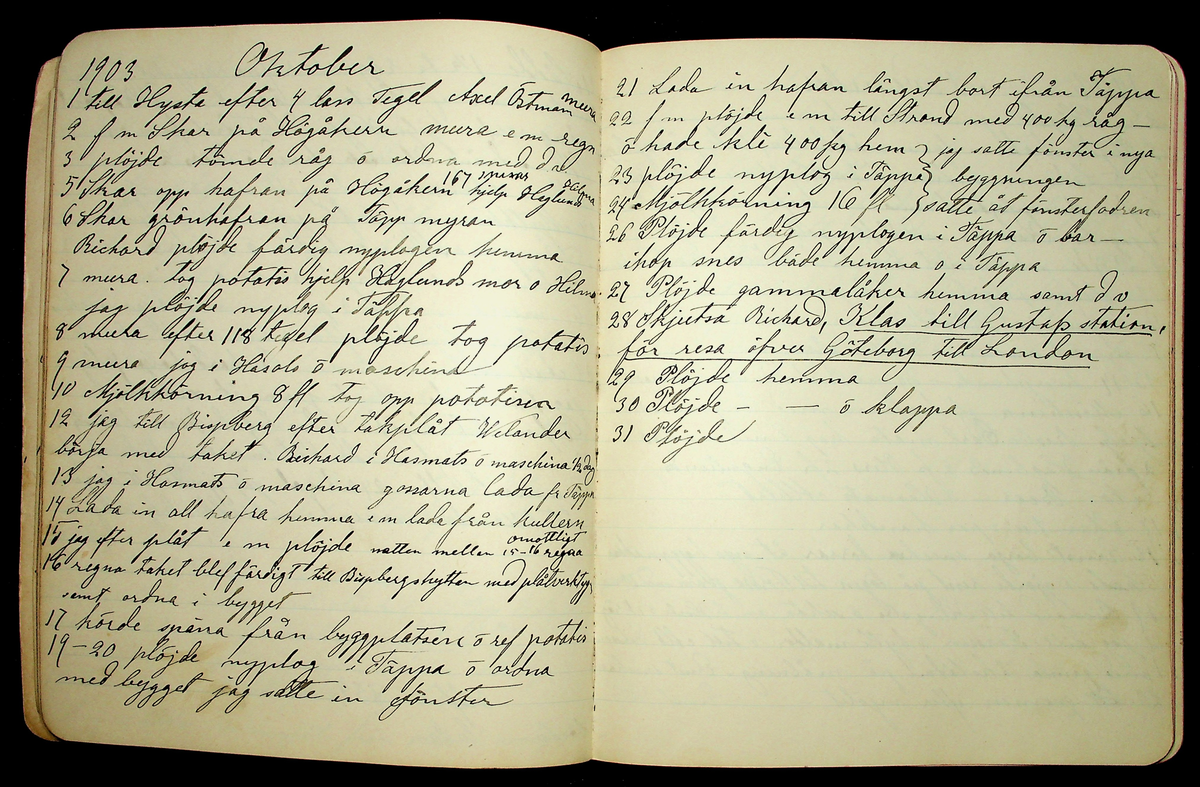 1903 Oktober
1 till Hysta efter 4 lass Tegel Axel Östman mura
2 f m Skar på Högåkern mura e m regn
3 plöjde tömde råg ö ordna med d v
5 Skar opp hafran på Högåkern 167 snesar hjelp Heglunds Hilma
6 Skar grönhafran på Täpp myran
Richard plöjde färdig nyplogen hemma
7 mura. tog potatis hjelp Häglunds mor o Hilma
jag plöjde nyplog i Täppa
8 mura efter 118 tegel plöjde tog potatis
9 mura jag i Hasols ö maschina
10 Mjölkkörning 8 fl tog opp potatisen
12 jag till Bispberg efter takplåt Welander
börja med taket. Richard i Hasmats ö maschina ½ dag
13 jag i Hasmats ö maschina gossarna lada fr Täppa
14 Lada in all hafra hemma e m lada från kullern
15 jag efter plåt e m plöjde natten mellan 15-16 omåttligt regna
16 regna taket blef färdigt till Bispbergshyttan med plåtverktyg
samt ordna i bygget
17 körde spåna från byggplatsen ö ref potatis
19-20 plöjde nyplog i Täppa ö ordna
med bygget jag satte in fönster
21 Lada in hafran längst bort ifrån Täppa
22 f m plöjde e m till Strand med 400 kg råg –
ö hade kli 400 kg hem } jag satte fönster i nya
23 plöjde nyplog i Täppa } byggningen
24 Mjölkkörning 16 fl } satte åt fönsterfodren
26 Plöjde färdig nyplogen i Täppa ö bar –
ihop snes både hemma o i Täppa
27 Plöjde gammalåker hemma samt d v
28 Skjutsa Richard, Klas till Gustafs station,
för resa öfver Göteborg till London
29 Plöjde hemma
30 Plöjde – — ö klappa
31 Plöjde